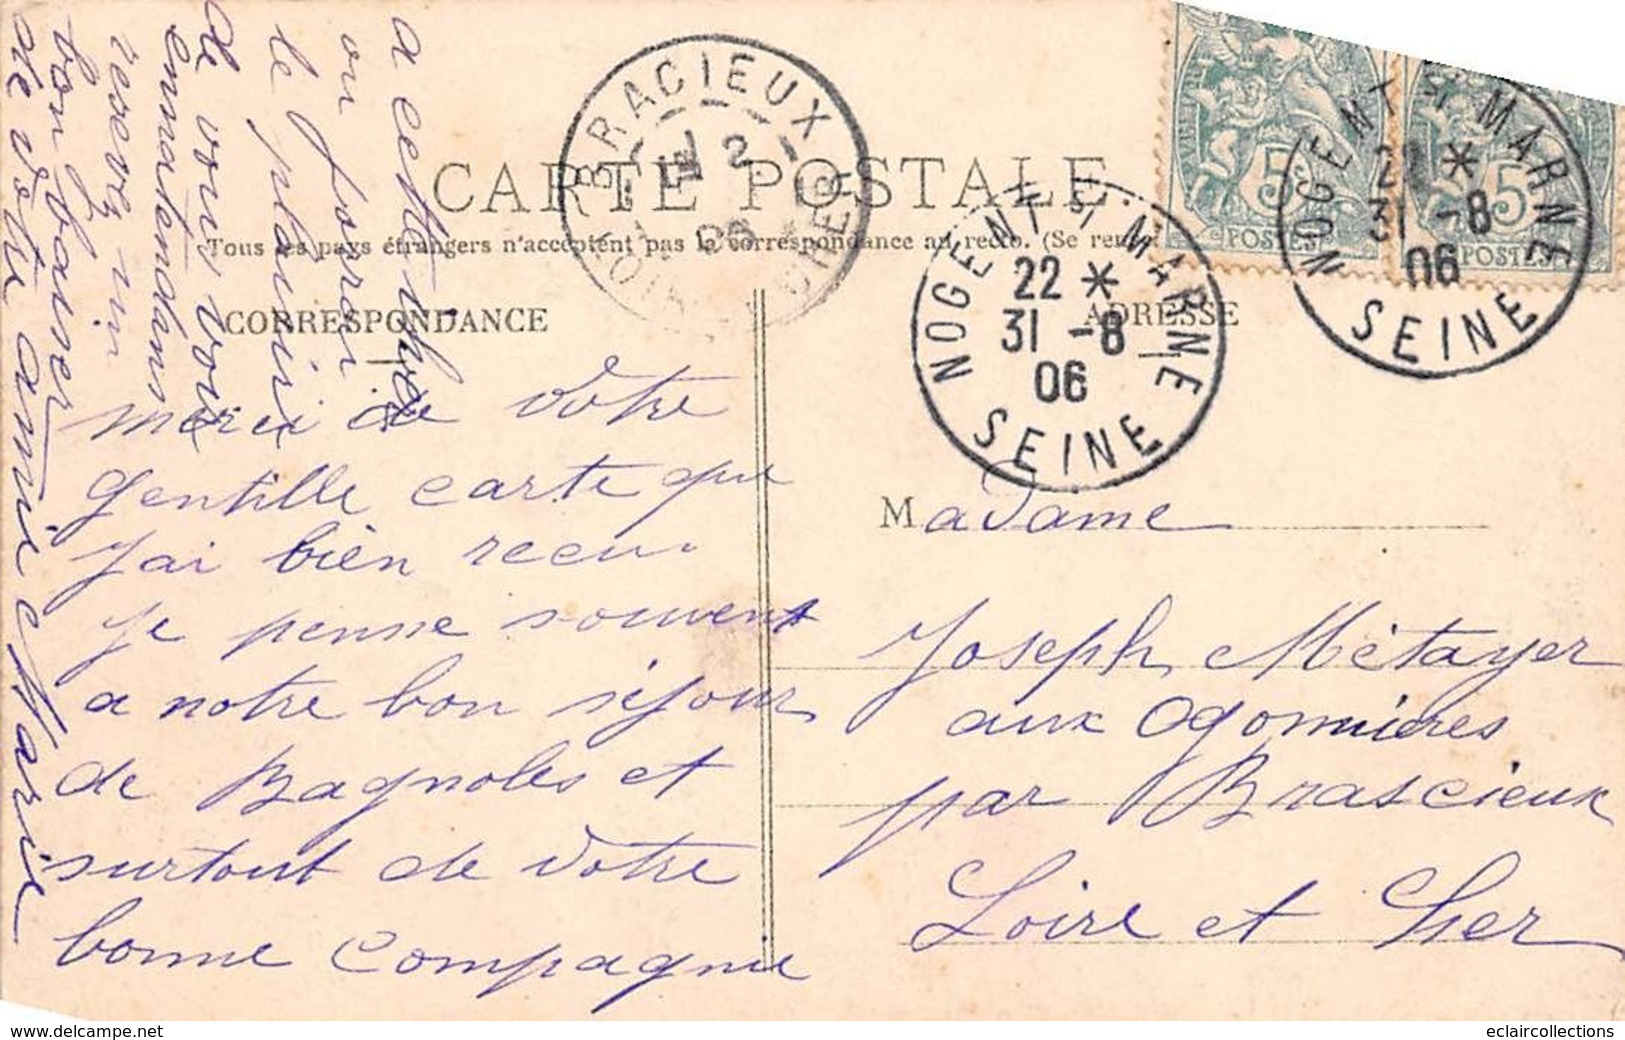 CARTE POSTALE
Tous les pays étrangers n'acceptent pas la correspondance au recto. (Se rens
CORRESPONDANCE
ADRESSE
BRACIEUX
2
06
LOIR CHER
NOGENT S MARNE
22 *
31 -8
06
SEINE
NOGENT S MARNE
22 *
31 -8
06
SEINE
5
POSTES
5
POSTES
merci de votre
gentille carte que
j'ai bien recu
je pense souvent
a notre bon séjour
de Bagnoles et
surtout de votre
bonne compagnie
a cette
ou j'aurai
le plaisir
de vous voir
enmatendans
resevez un
bon baiser
de votre amie Marie
Madame
Joseph Métayer
aux Ogonnieres
par Brascieux
Loire et Cher
www.delcampe.net
eclaircollections